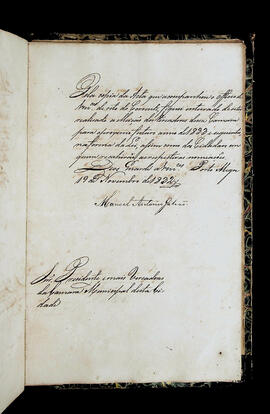 Pela copia da Acta que acompanhou o officio de
Vm.ces de oito do Corrente, fiquei inteirado de estar
realisada a Eleição dos Vereadores dessa Camara
para o proximo futuro anno de 1833 e seguintes
na forma da Lei, assim como dos Cidadãos em
quem recahirão as respectivas nomeações
Deos Guarde a Vm.ces Porto Alegre
19 de Novembro de 1832
Manoel Antonio Galvão
Snr.es Presidente e mais Vereadores
da Camara Municipal desta Ci
dade